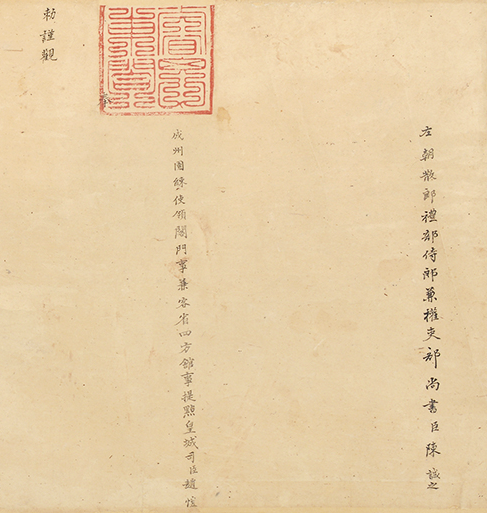 左朝散郎禮部侍郎兼權吏部尚書臣陳誠之
成州團練使領閤門事兼客省四方館事提點皇城司臣趙
勑謹觀